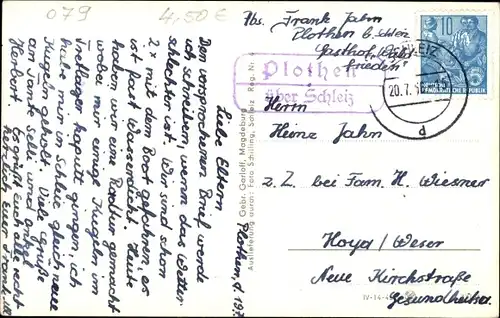 079
4,50 €
Plothen, d. 19.7.
Liebe Eltern
Den versprochenen Brief werde
ich schreiben, wenn das Wetter
schlechter ist. Wir sind schon
2x mit dem Boot gefahren, es
ist fast Wasserdicht. Heute
haben wir eine Radtour gemacht
wobei mir einige Kugeln im
Tretlager kaputt gingen, ich
habe mir in Schleiz gleich neue
Kugeln geholt. Viele Grüße
an Tante Selli und Onkel
Herbert. Es grüßt euch alle recht
herzlich euer Frank
Gebr. Gerloff, Magdeburg
Auslieferung durch: Foto Schilling, Schleiz Reg. Nr. 4
Abs. Frank Jahn
Plothen b. Schleiz
Gasthof
Frieden
Plothen
über Schleiz
SCHLEIZ
20.7.
d
10
DEUTSCHE DEMOKRATISCHE REPUBLIK
Herrn
Heinz Jahn
z. Z. bei Fam. H. Wiesner
Hoya / Weser
Neue Kirchstraße
Gesundheitser.
IV-14-4